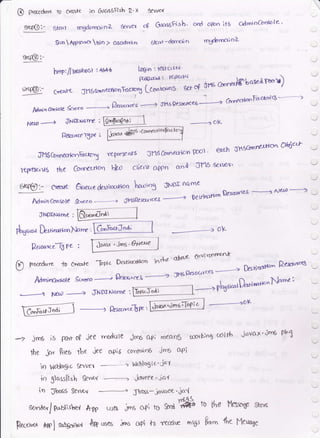 ④ procedure to create in GlassFish 2.x server
step①:- start mydomain2 server of GlassFish. and open its AdminConsole.
Sun\AppServer\bin> asadmin start-domain mydomain2
step②:-
http://localhost:4848 login:
password:
step③:- create JMSConnectionFactory (contains set of JMS Connection based pool)
AdminConsole Screen → Resources → JMSResources → ConnectionFactories →
New → JNDIName: → ok
Resource Type:
JMSConnectionFactory represents JMSConnection pool. each JmsConnection Object
represents the Connection b/w client appn and JMS Server.
step④:- create Queue destination having JNDI name
AdminConsole Screen → JMSResources → Destination Resources → New →
JNDIName: QueueJndi
physical Destination Name: → ok
Resource Type: Javax.Jms.Queue
⑤ procedure to create Topic Destination in the above environment
AdminConsole Screen → Resources → JMSResources → Destination Resources
→ New → JNDIName: TopicJndi → physical Destination Name:
→ Resource Type: Javax.Jms.Topic → ok
→ jms is part of jee module jms api means working with javax.jms pkg
the jar files the jee apis contains jms api
in weblogic server → weblogic.jar
in glassfish server → javaee.jar
in Jboss server → jboss-javaee.jar
Sender/publisher App uses jms api to send msgs to the Message Store
Receiver App/subscriber App uses jms api to receive msgs from the Message